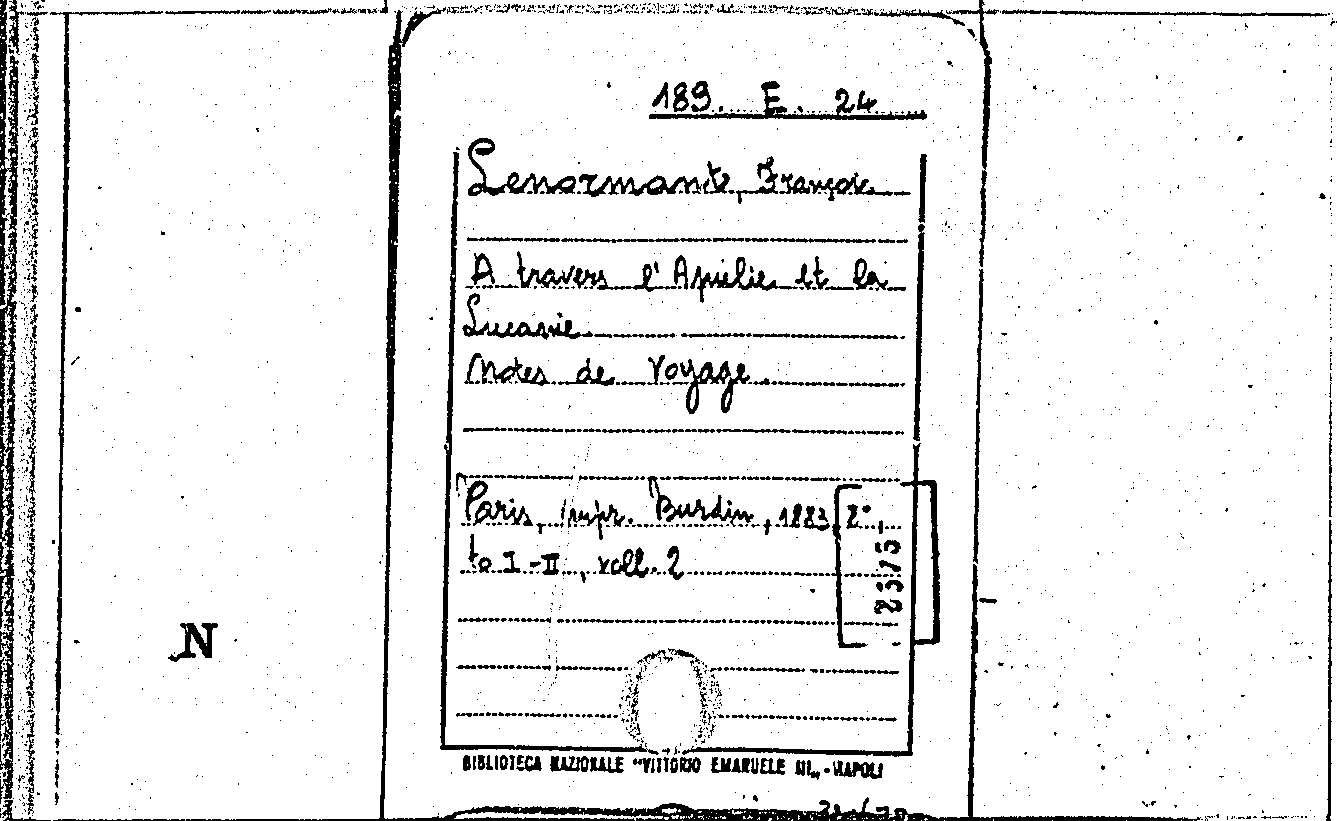 189. E. 24
Lenormant, François
A travers l'Apulie et la
Lucanie
Notes de Voyage.
Paris, impr. Burdin, 1883, 8°,
to I-II, voll. 2
N
BIBLIOTECA NAZIONALE "VITTORIO EMANUELE III„ - NAPOLI